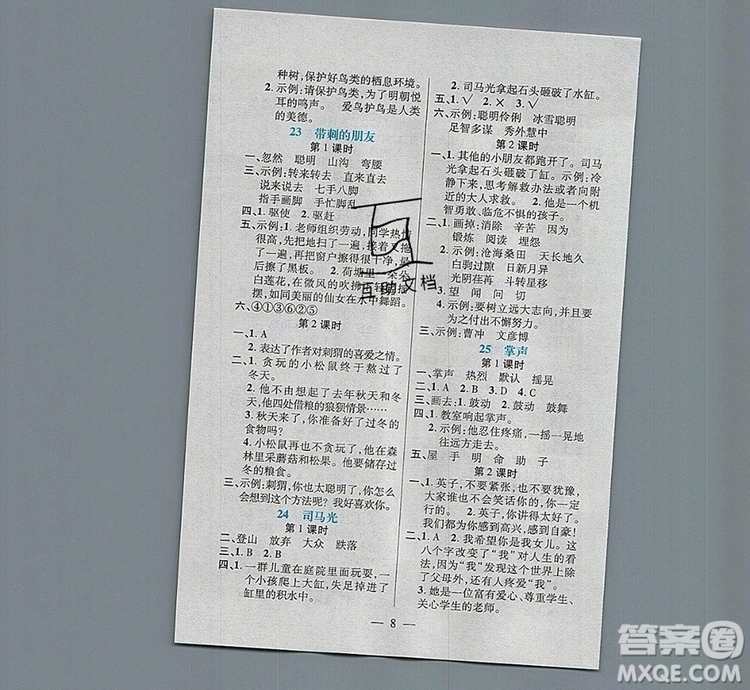 种树,保护好鸟类的栖息环境。
2. 示例:请保护鸟类,为了明朝悦
耳的鸣声。 爱鸟护鸟是人类
的美德。
23 带刺的朋友
第1课时
一、忽然 聪明 山沟 弯腰
三、示例:转来转去 直来直去
说来说去 七手八脚
指手画脚 手忙脚乱
四、1. 驱使 2. 驱赶
五、示例:1. 老师组织劳动,同学热情
很高,先把地扫了一遍,接着又拖
了一遍,再把窗户擦得很干净,最
后擦了黑板。 2. 荷塘里一朵朵
白莲花,在微风的吹拂下轻轻摇
摆,如同美丽的仙女在水中舞蹈。
六、④①③⑥②⑤
第2课时
一、1. A
2. 表达了作者对刺猬的喜爱之情。
二、1. 贪玩的小松鼠终于熬过了
冬天。
2. 他不由想起了去年冬天和
四处借粮的狼狈情景……
3. 秋天来了,你准备好了过冬的
食物吗?
4. 小松鼠再也不贪玩了,他来到
森林里采蘑菇和松果。他要储存过
冬的粮食。
三、示例:刺猬,你也太聪明了,你怎么
会想到这个方法呢?我好喜欢你。
24 司马光
第1课时
二、登山 放弃 大众 跌落
三、1. C 2. B 3. B
四、1. 一群儿童在庭院里面玩耍,一
个小孩爬上大缸,失足掉进了
缸里的积水中。
2. 司马光拿起石头砸破了水缸。
五、1. √ 2. × 3. √
六、示例:聪明伶俐 冰雪聪明
足智多谋 秀外慧中
第2课时
一、1. 其他的小朋友都跑开了。司马
光拿起石头砸破了缸。示例:冷
静下来,思考解救办法或者向附
近的大人求救。 2. 他是一个机
智勇敢、临危不惧的孩子。
二、1. 画掉:消容 辛苦 因为
锻炼 阅读 埋怨
2. 示例:沧海桑田 天长地久
白驹过隙 日新月异
光阴荏苒 斗转星移
3. 望 闻 问 切
4. 示例:要树立远大志向,并且要
为之付出不懈努力。
三、示例:曹冲 文彦博
25 掌声
第1课时
一、掌声 热烈 默认 摇晃
二、1. A 2. B 3. D 4. C
三、画去:1. 鼓动 2. 鼓动 鼓舞
四、1. 教室响起掌声。
2. 示例:他忍住疼痛,一摇一晃地
往远方走去。
五、屋 手 明 命 助 子
第2课时
一、1. 英子,不要紧张,也不要犹豫,
大家是不会笑话你的,你一定
行! 2. 英子,你讲得太好了。
我们都为你感到高兴,感到自豪!
二、1. A 2. 我希望你是我女儿。这
八个字改变了“我”对人生的看
法,因为“我”发现这个世界上除
了父母外,还有人疼爱“我”。
3. 她是一位富有爱心、尊重学生、
关心学生的老师。
— 8 —
互助文档
答案圈
MXQE.COM